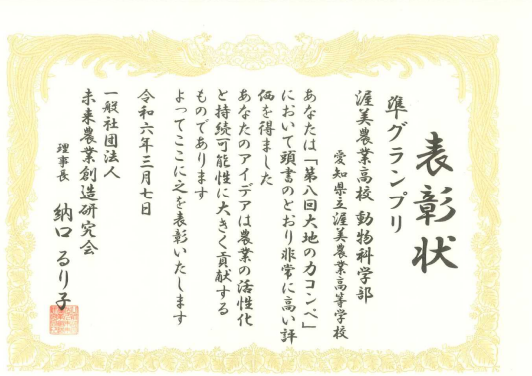 表彰状
準グランプリ
渥美農業高校 動物科学部
愛知県立渥美農業高等学校
あなたは「第八回大地の力コンペ」
において頭書のとおり非常に高い評
価を得ました
あなたのアイデアは農業の活性化
と持続可能性に大きく貢献する
ものであります
よってここに之を表彰いたします
令和六年三月七日
一般社団法人
未来農業創造研究会
理事長 納口 るり子